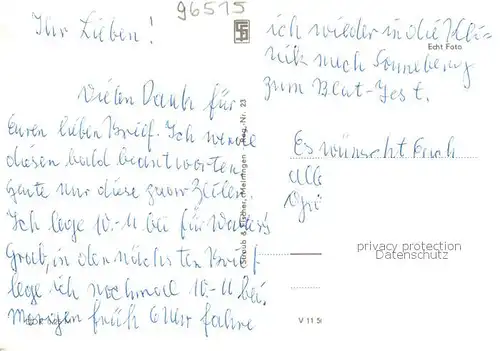 96515
Ihr Lieben!
Vielen Dank für
Euren lieben Brief. Ich werde
diesen bald beantworten
heute nur diese paar Zeilen.
Ich lege 10.-M bei für Walter's
Grab, in den nächsten Brief
lege ich nochmal 10.-M bei.
Morgen früh 6 Uhr fahre
ich wieder in die Kli=
nik nach Sonneberg
zum Blut-Test.
Echt Foto
Es wünscht Euch
alle
Straub & Fischer, Meiningen Reg.-Nr. 23
privacy protection
Datenschutz
V 11 5